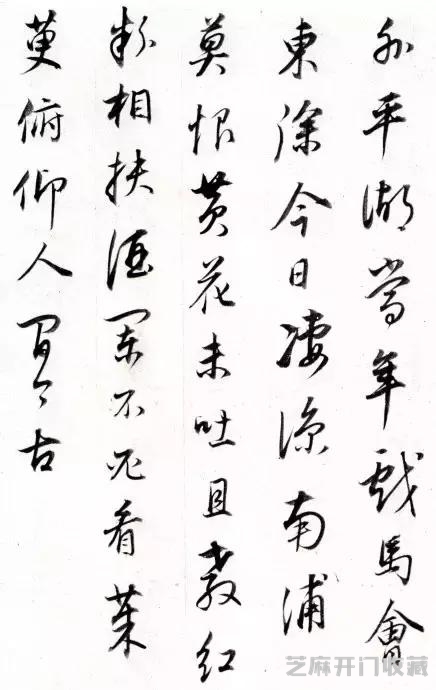 外平湖當年戲馬會
東徐今日凄涼南浦
莫恨黃花未吐且教紅
粉相扶酒闌不必看茱
萸俯仰人間今古
芝麻开门收藏